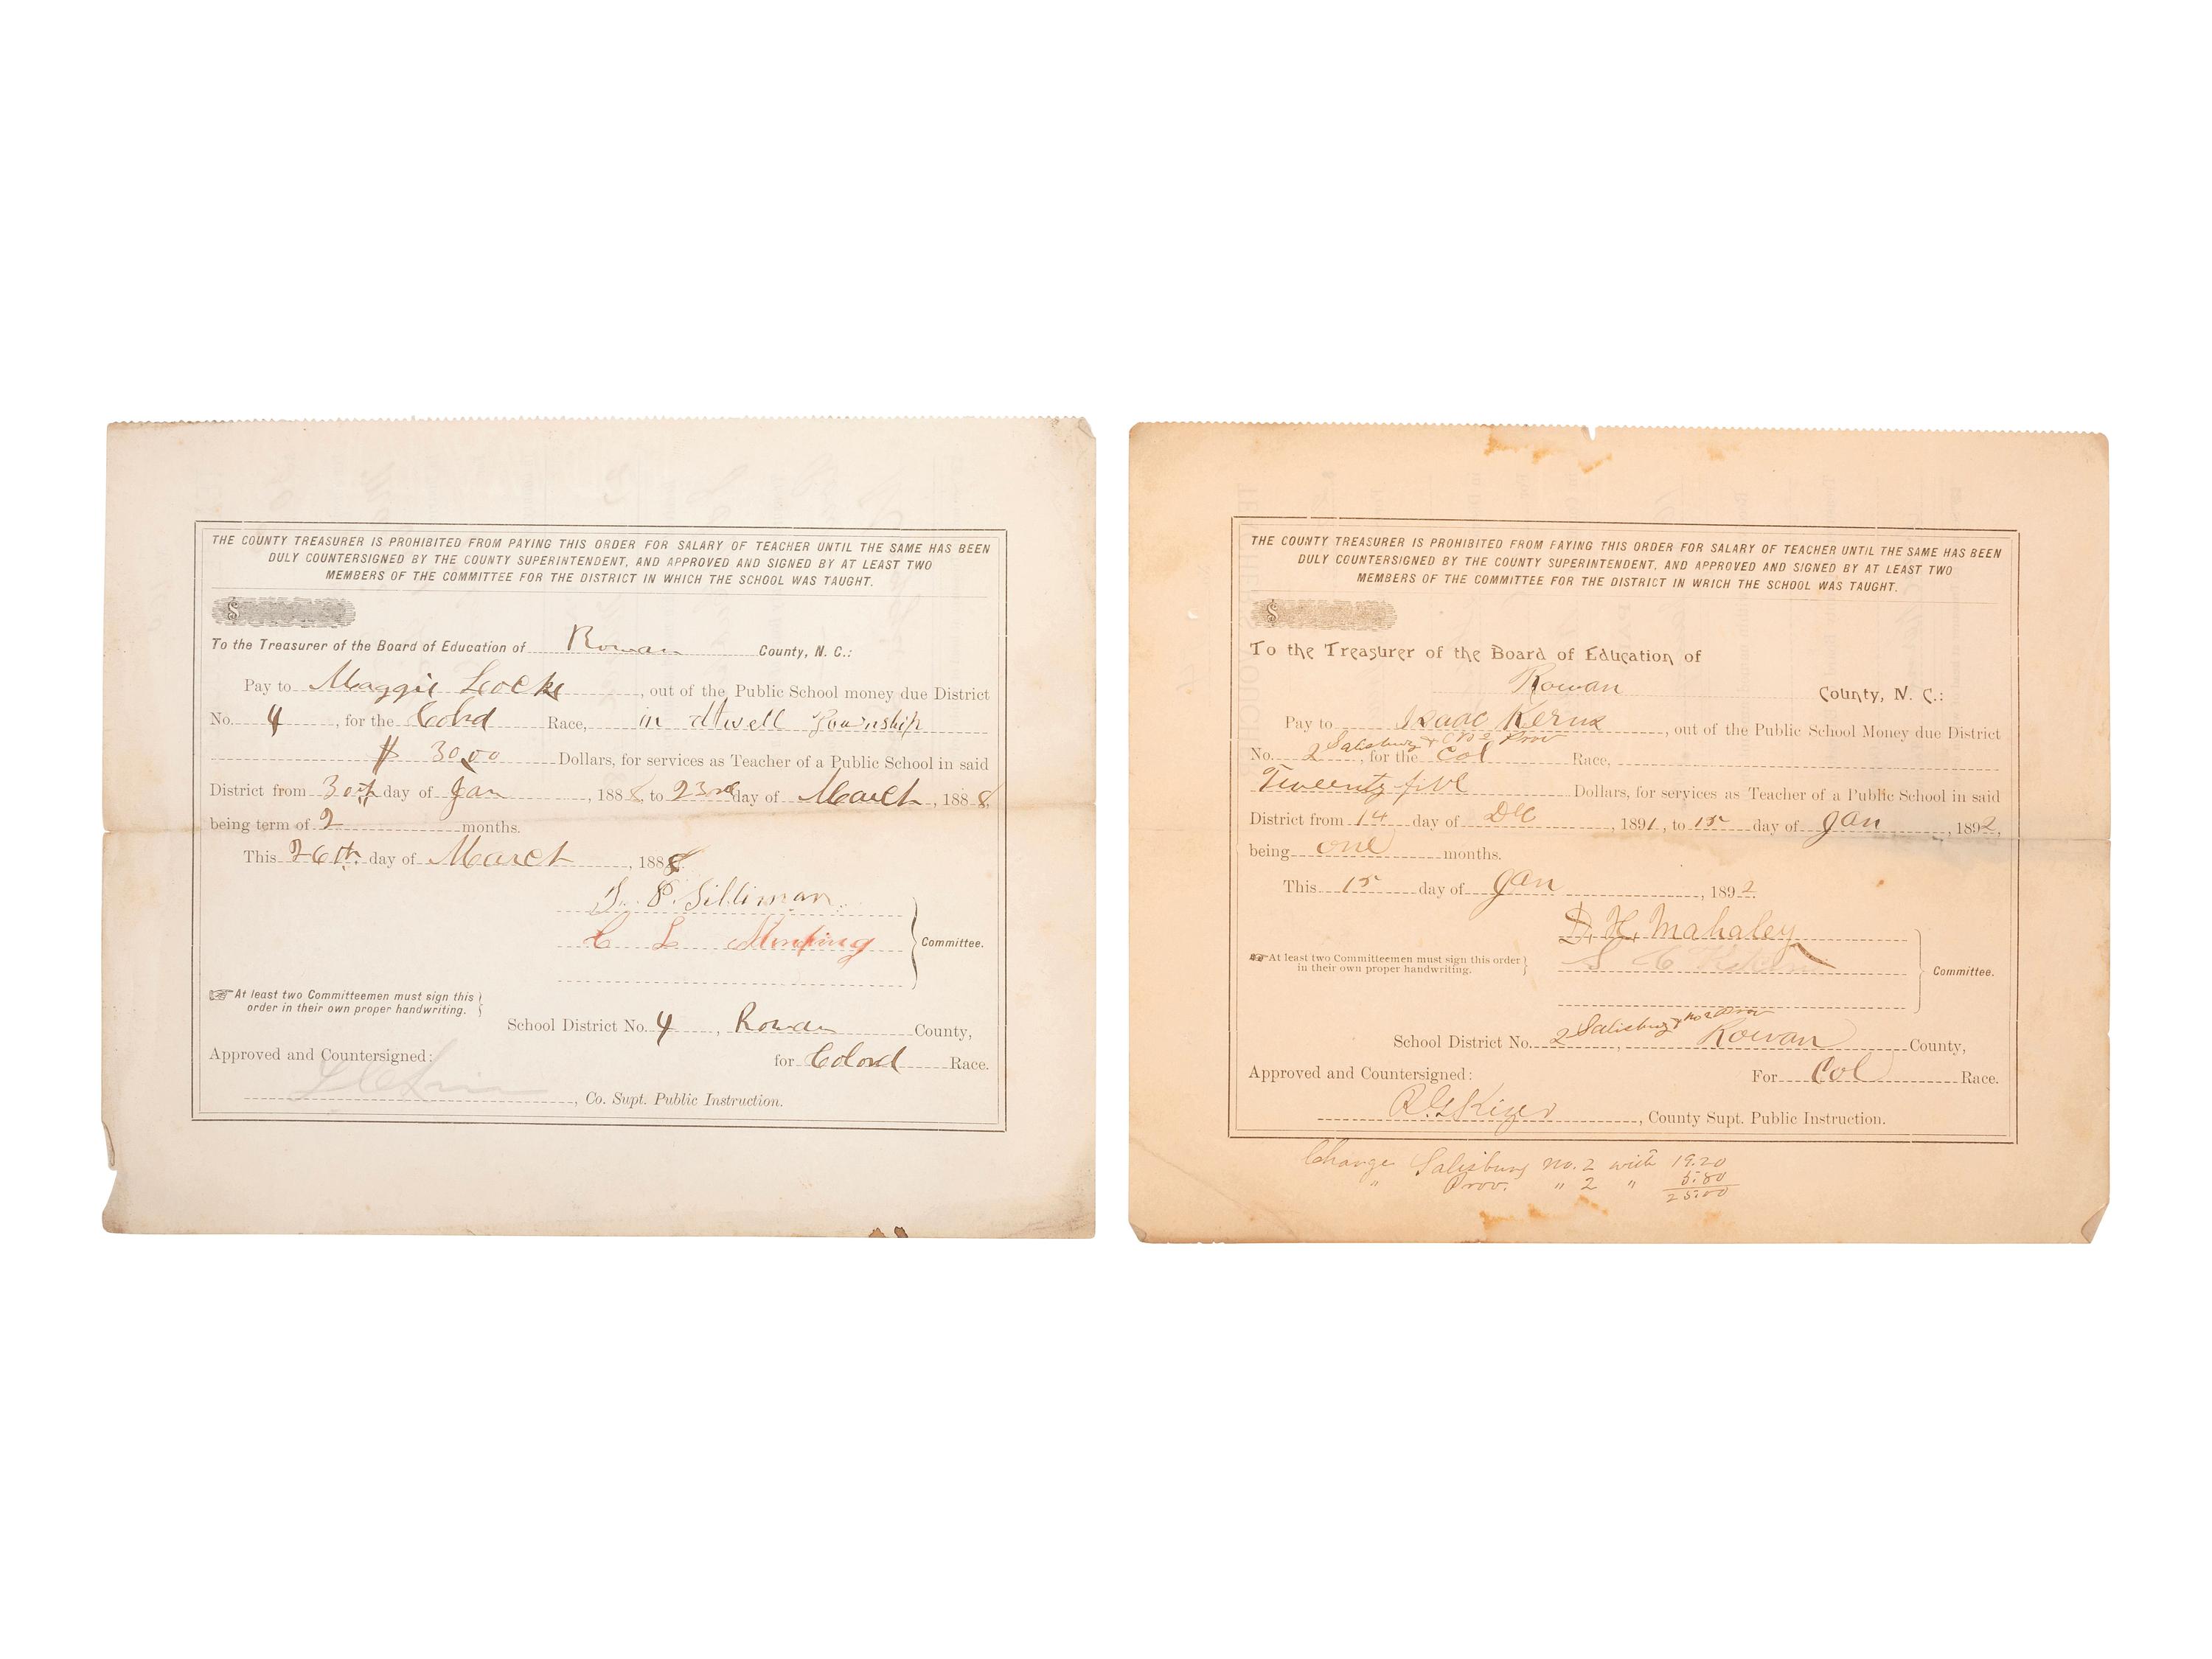 THE COUNTY TREASURER IS PROHIBITED FROM PAYING THIS ORDER FOR SALARY OF TEACHER UNTIL THE SAME HAS BEEN
DULY COUNTERSIGNED BY THE COUNTY SUPERINTENDENT, AND APPROVED AND SIGNED BY AT LEAST TWO
MEMBERS OF THE COMMITTEE FOR THE DISTRICT IN WHICH THE SCHOOL WAS TAUGHT.
$
To the Treasurer of the Board of Education of Rowan County, N. C.:
Pay to Maggie Locke, out of the Public School money due District
No. 4, for the Colrd Race, in Atwell Township
$ 30.00 Dollars, for services as Teacher of a Public School in said
District from 30th day of Jan, 1888, to 23rd day of March, 1888,
being term of 2 months.
This 26th day of March, 1888.
P. Silliman
C L
Committee.
☞ At least two Committeemen must sign this
order in their own proper handwriting.
School District No. 4, Rowan County,
Approved and Countersigned: for Colord Race.
, Co. Supt. Public Instruction.
THE COUNTY TREASURER IS PROHIBITED FROM PAYING THIS ORDER FOR SALARY OF TEACHER UNTIL THE SAME HAS BEEN
DULY COUNTERSIGNED BY THE COUNTY SUPERINTENDENT, AND APPROVED AND SIGNED BY AT LEAST TWO
MEMBERS OF THE COMMITTEE FOR THE DISTRICT IN WHICH THE SCHOOL WAS TAUGHT.
$
To the Treasurer of the Board of Education of
Rowan County, N. C.:
Pay to Isaac Kerns, out of the Public School Money due District
No. 2 Salisbury & No 2 Prov, for the Col Race,
Tweenty five Dollars, for services as Teacher of a Public School in said
District from 14 day of Dec, 1891, to 15 day of Jan, 1892,
being one months.
This 15 day of Jan, 1892.
D. H. Mahaley
S C
Committee.
☞ At least two Committeemen must sign this order
in their own proper handwriting.
School District No. 2 Salisbury & No 2 Prov, Rowan County,
Approved and Countersigned: For Col Race.
R. G. Kizer, County Supt. Public Instruction.
Charge Salisbury No. 2 with 19.20
" Prov. " 2 " 5.80
25.00